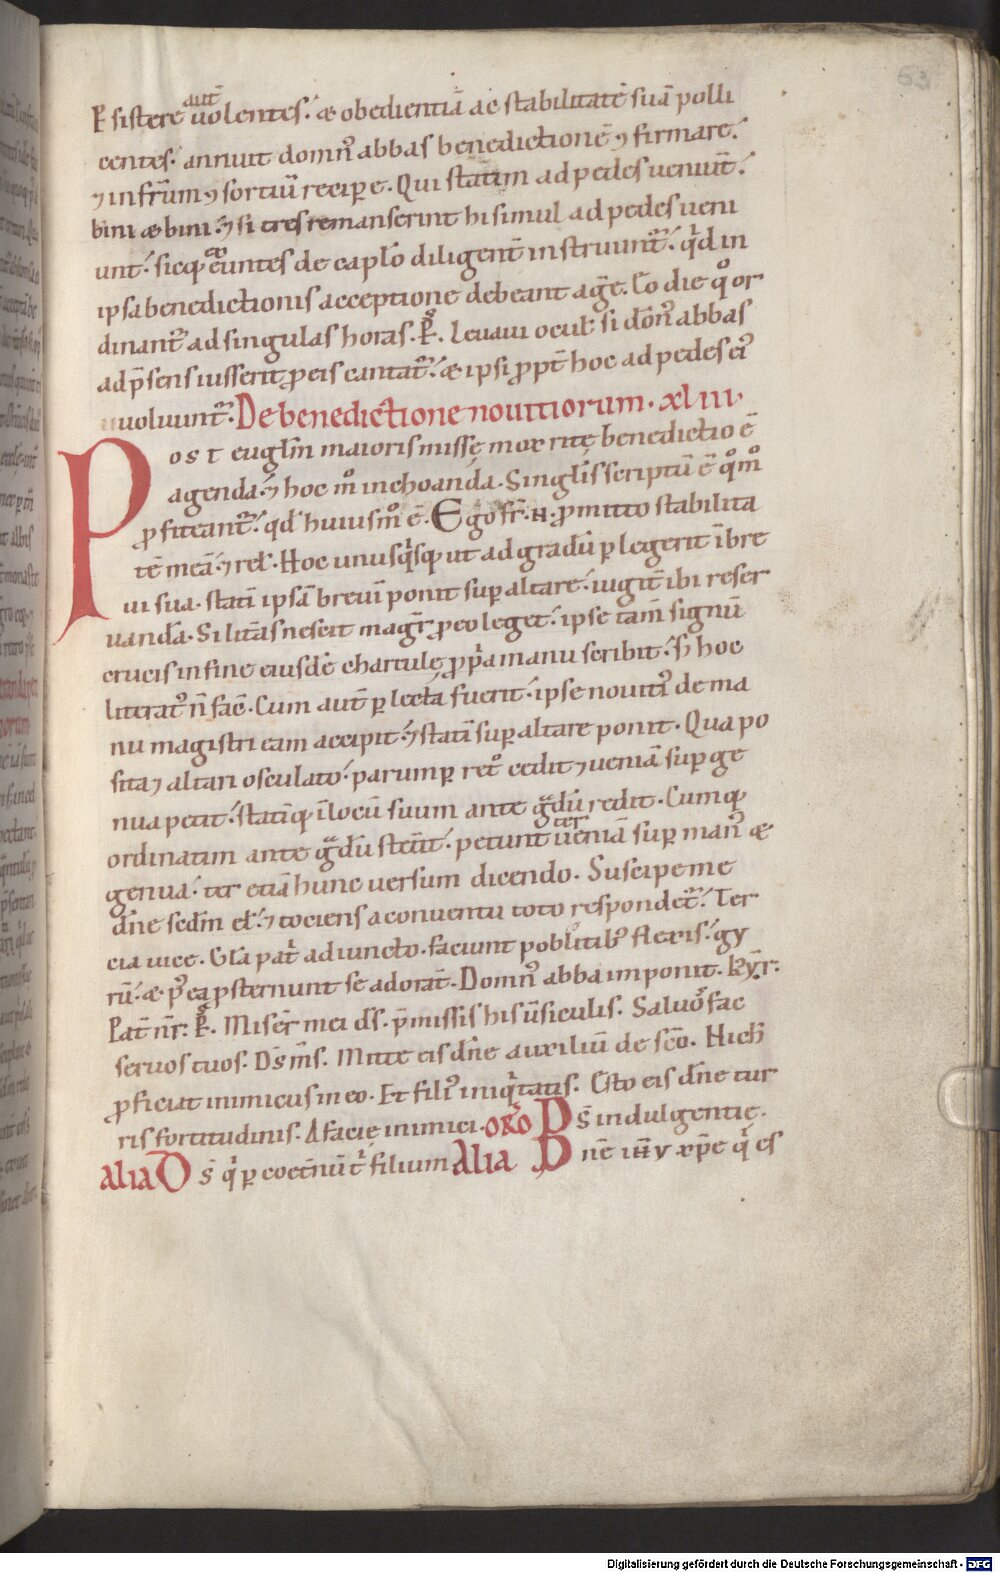 P sistere aut̄ uolentes.' æ obedientiā ac stabilitatē suā polli
centes.' annuit domn᷒ abbas benedictionē ⁊ firmare.'
⁊ in fr̄um ⁊sortiū recipere. Qui statim ad pedes ueniūt.'
bini æ bini.' ⁊ si tres remanserint hi simul ad pedes ueni
unt.' sicq; euntes de caplo diligent̄ instruunt᷒.' qd in
ipsa benedictionis acceptione debeant agē. Eo die qͦ or
dinant᷒ ad singulas horas. P̄s. Leuaui ocul. si dōn᷒ abbas
ad p̄sens iusserit ꝓ eis cantat᷒.' æ ipsi ꝓpt̄ hoc ad pedes ei᷒
uuoluunt᷒. De benedictione nouitiorum. xliii.
Post euglm maioris missę mox ritę benedictio ē
agenda.' ⁊ hoc m̊ inchoanda. Singlis scriptū ē qͦm̊
ꝓfiteant᷒.' qd huiusm̊ ē. Ego fr̄. N. ꝓmitto stabilita
tē meā.' ⁊ rel. Hoc unusqͥsq; ut ad gradū ꝑlegerit ī bre
ui sua. statī ipsā breuī ponit suꝑ altare.' iugit̄ ibi reser
uanda. Si litās nescit magr̄ ꝓ eo leget.' ipse tam̄ signū
crucis in fine eiusdē chartulę ꝓpͥa manu scribit.' s; hoc
literat᷒ n̄ faē. Cum aut̄ ꝑlecta fuerit.' ipse nouiti᷒ de ma
nu magistri eam accipit.' ⁊ statī suꝑ altare ponit. Qua po
sita ⁊ altari osculato.' parumꝑ retͦ cedit ⁊ ueniā suꝑ ge
nua petit.' statīq; ī locū suum ante gͣdū redit. Cumq;
ordinatim ante gͣdū stet̄it.' petunt ter ueniā suꝑ man᷒ æ
genua.' ter etiā hunc uersum dicendo. Suscipe me
dn̄e scdm el.' ⁊ tociens a conuentu toto respondet᷒.' Ter
cia uice. Glā patͥ adiuncto. faciunt poblitib᷒ flexis.' gy
rū.' æ p᷒ ea ꝓsternunt se adorāt. Domn᷒ abba imponit. Kyr̄.
Pat̄ nr̄. P̄s. Miser̄ mei ds. p̄missis his ūsiculis. Saluos fac
seruos tuos. Ds ms. Mitte eis dn̄e auxiliū de scō. Nichil
ꝓficiat inimicus in eo. Et fili᷒ iniqͥtatis. Esto eis dn̄e tur
ris fortitudinis. A facie inimici. oro Ds̄ indulgentię.
alia Ds̄ qͥ ꝑ coet̄nū tͥ filium alia Dn̄e ihū xp̄e qͥ es
Digitalisierung gefördert durch die Deutsche Forschungsgemeinschaft - DFG